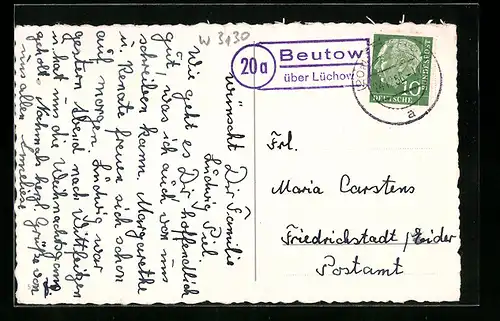 W 3130
20a
Beutow
über Lüchow
DEUTSCHE
BUNDESPOST
10
a
Frl.
Maria Carstens
Friedrichstadt/Eider
Postamt
wünscht Dir Familie
Ludwig Piel.
Wie geht es Dir hoffendlich
gut, was ich auch von uns
schreiben kann. Margarethe
u. Renate freuen sich schon
auf morgen. Ludwig war
gestern Abend nach
u. hat uns die Weihnachtsgans
geholt. Nochmals herzl. Grüße von
uns allen